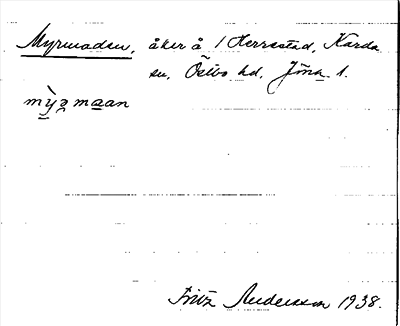 Myrmaden, åker å 1 Herrestad, Kärda
sn, Östbo hd, Jönk. l.
mỳʒmaan
Fritz Andersson 1938.